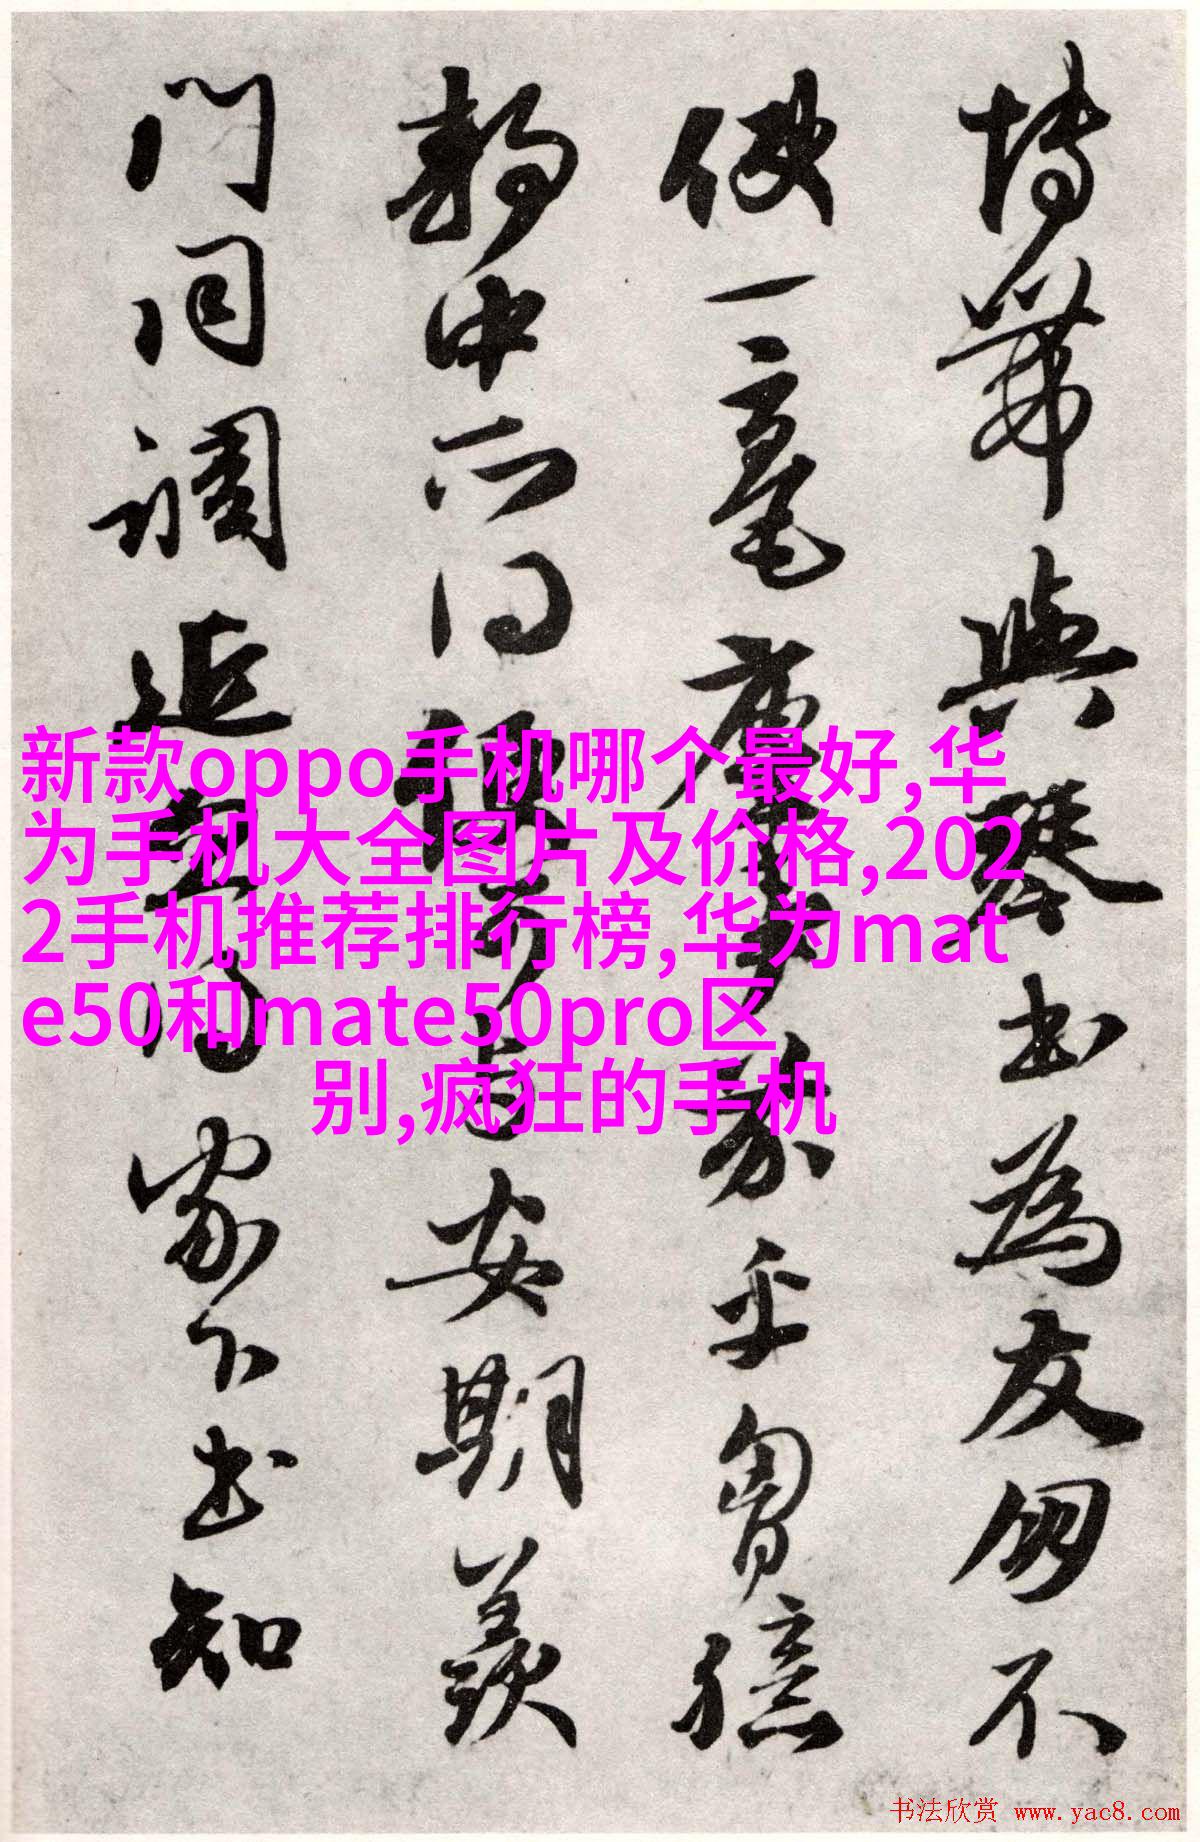 新款oppo手机哪个最好,华
为手机大全图片及价格,202
2手机推荐排行榜,华为mat
e50和mate50pro区
别,疯狂的手机
與琴書為友不
使一毫塵乎胷臆
静中所得安期羨
門同調家下書知
书法欣赏 www.yac8.com